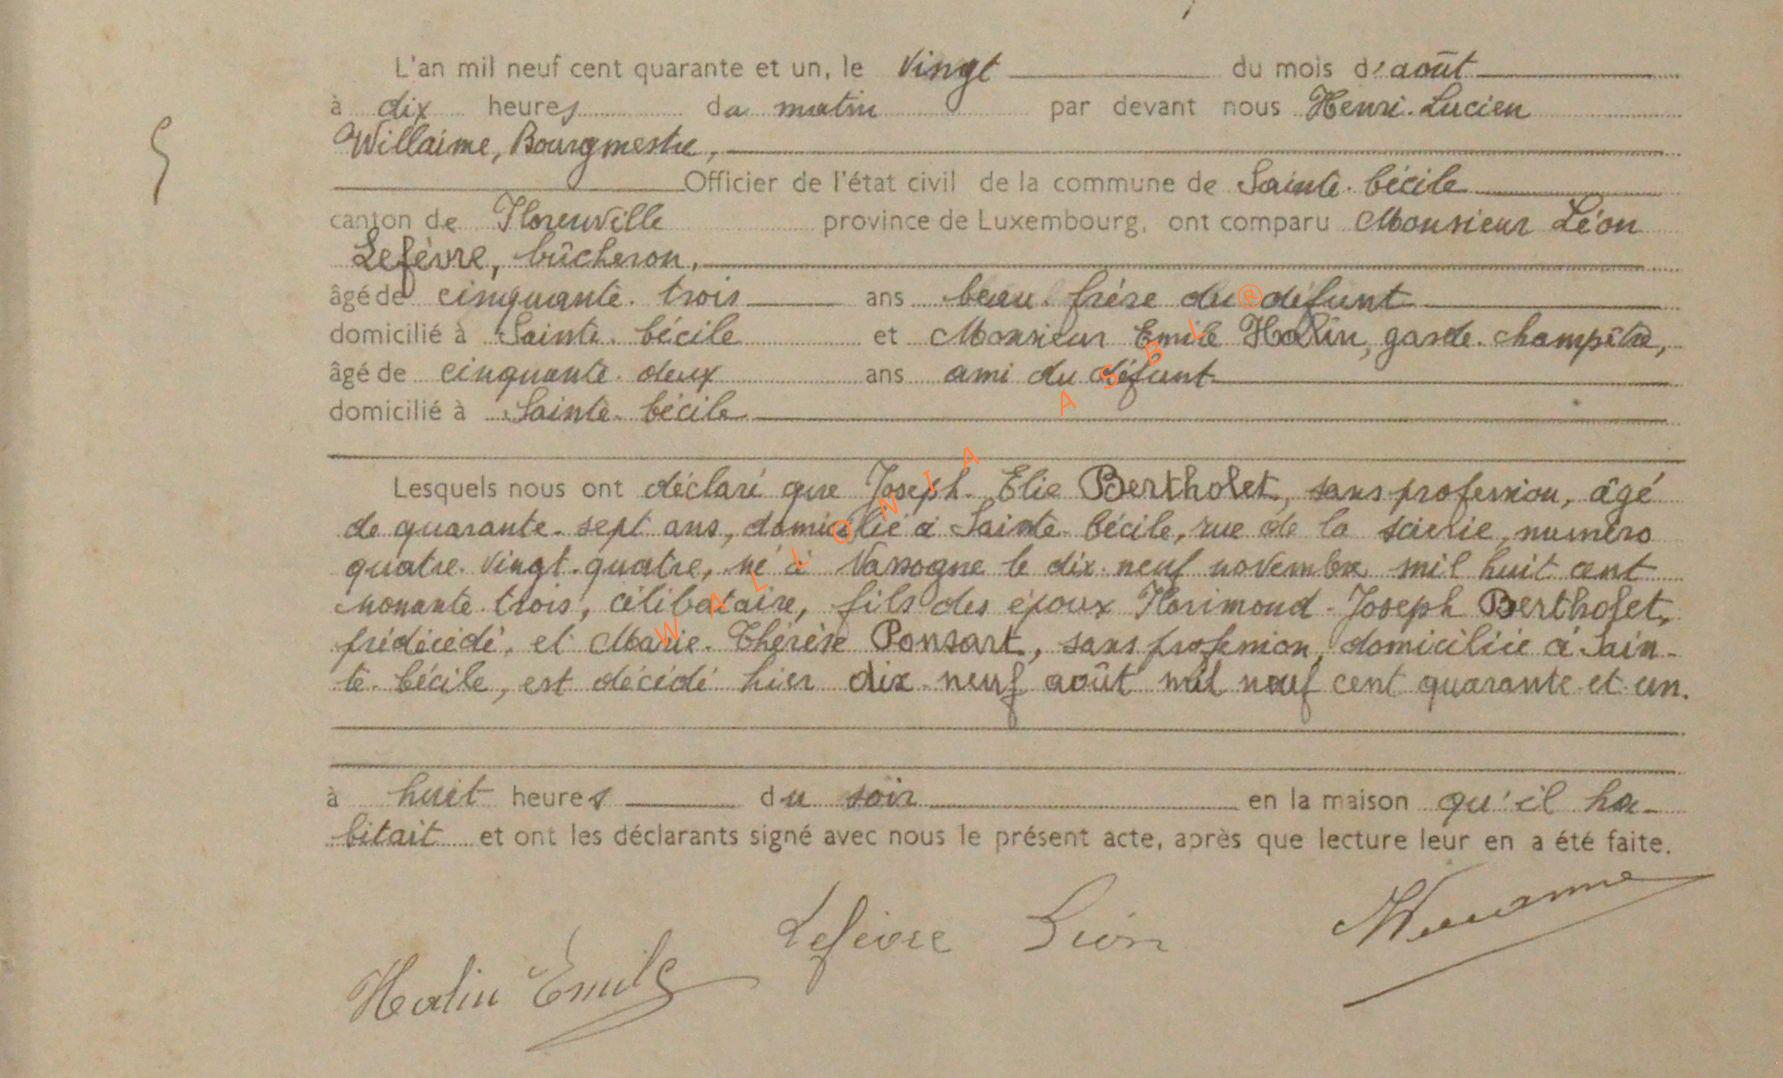 L'an mil neuf cent quarante et un, le vingt du mois d'août
à dix heures du matin par devant nous Henri-Lucien
Willaime, Bourgmestre,
5
Officier de l'état civil de la commune de Sainte-Cécile
canton de Florenville province de Luxembourg, ont comparu Monsieur Léon
Lefèvre, bûcheron,
âgé de cinquante-trois ans beau-frère du défunt
domicilié à Sainte-Cécile et Monsieur Emile Halin, garde-champêtre,
âgé de cinquante-deux ans ami du défunt
domicilié à Sainte-Cécile
Lesquels nous ont déclaré que Joseph-Elie Bertholet, sans profession, âgé
de quarante-sept ans, domicilié à Sainte-Cécile, rue de la scierie, numéro
quatre-vingt-quatre, né à Nassogne le dix-neuf novembre mil huit cent
nonante-trois, célibataire, fils des époux Florimond-Joseph Bertholet,
prédécédé, et Marie-Thérèse Ponsart, sans profession, domiciliée à Sain-
te-Cécile, est décédé hier dix-neuf août mil neuf cent quarante et un.
à huit heures du soir en la maison qu'il ha-
bitait et ont les déclarants signé avec nous le présent acte, après que lecture leur en a été faite.
Lefèvre Léon
Halin Emile
WALLONIA ASBL
®